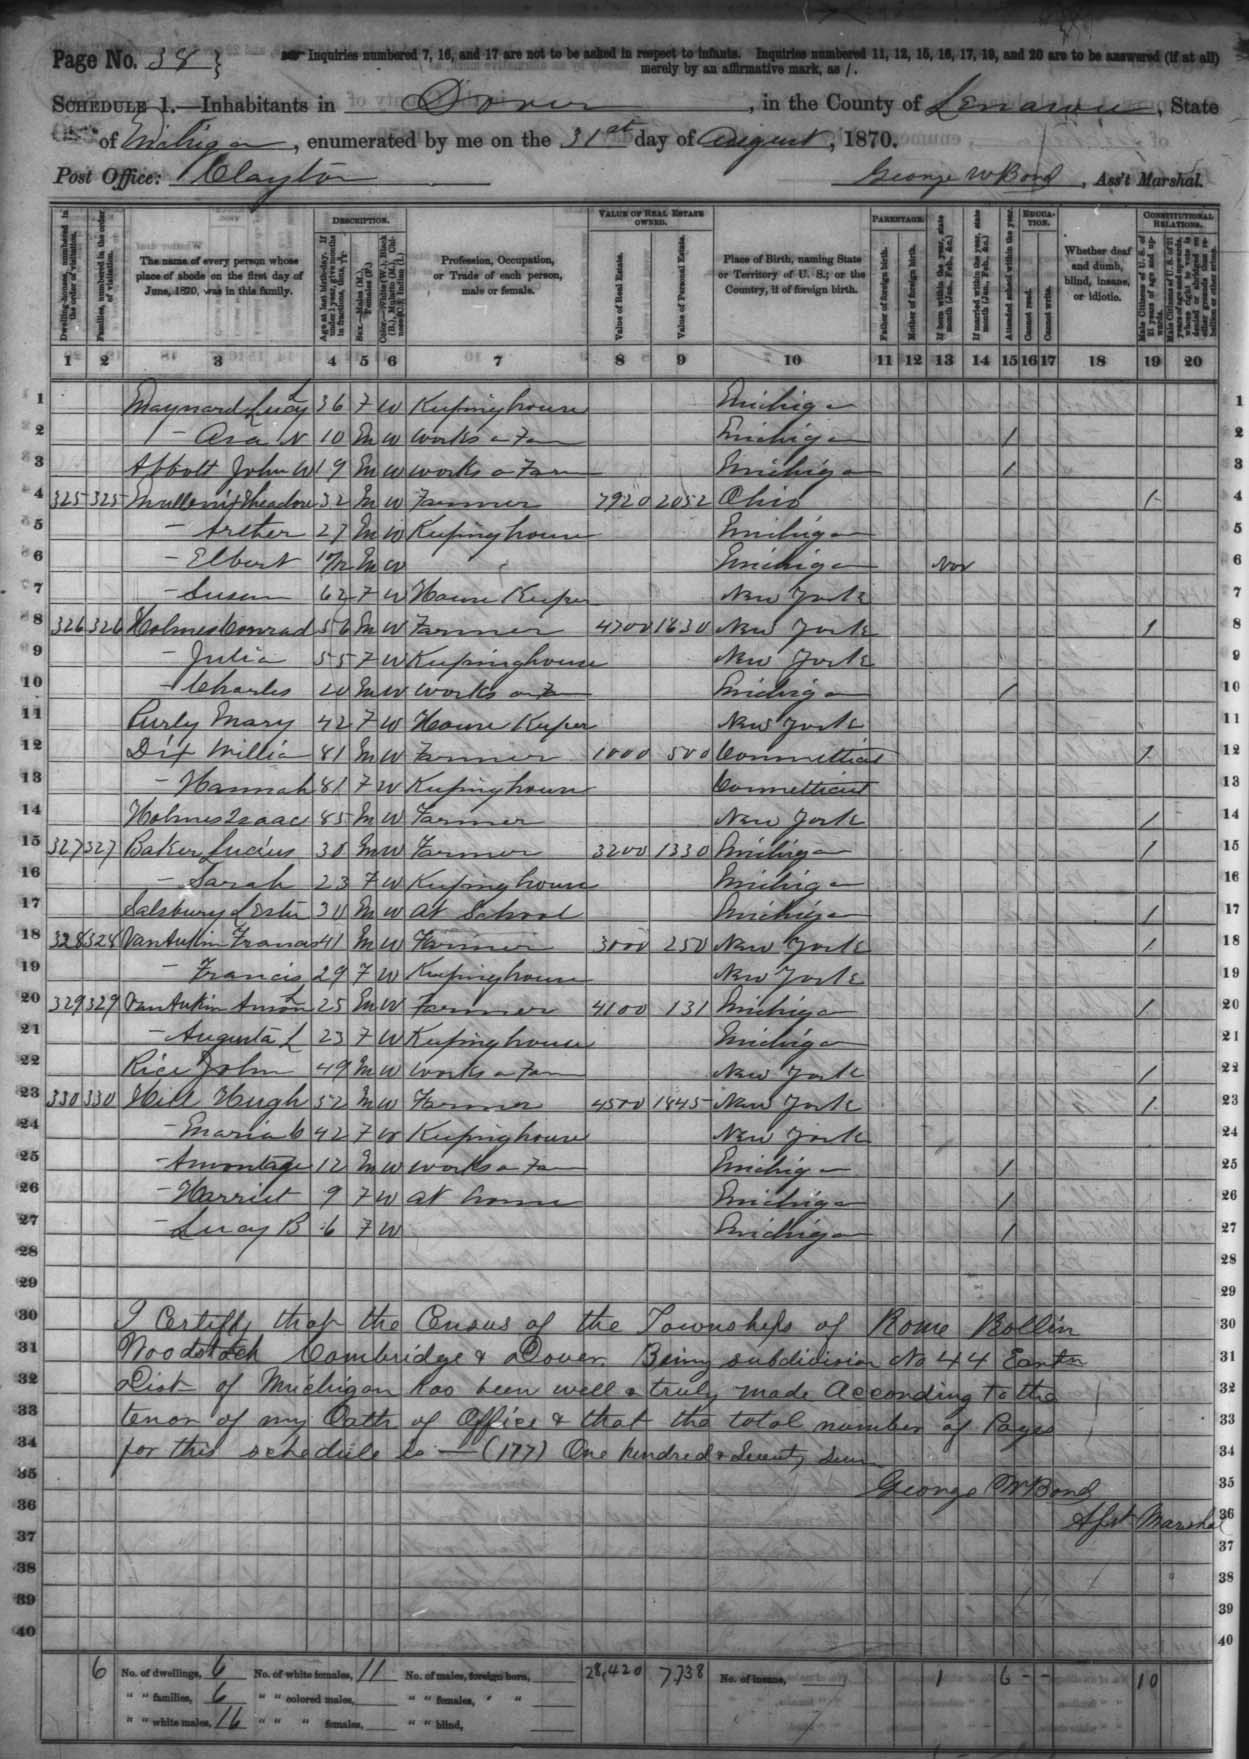 Page No. 38 Inquiries numbered 7, 16, and 17 are not to be asked in respect to infants. Inquiries numbered 11, 12, 15, 16, 17, 19, and 20 are to be answered (if at all)
merely by an affirmative mark, as /.
SCHEDULE 1.—Inhabitants in Dover, in the County of Lenawee, State
of Michigan, enumerated by me on the 31st day of August, 1870.
Post Office: Clayton George W Bond, Ass't Marshal.
DESCRIPTION. VALUE OF REAL ESTATE OWNED. PARENTAGE. EDUCATION. CONSTITUTIONAL RELATIONS.
Dwelling-houses, numbered in the order of visitation.
Families, numbered in the order of visitation.
The name of every person whose place of abode on the first day of June, 1870, was in this family.
Age at last birth-day. If under 1 year, give months in fractions, thus, 3/12
Sex.—Males (M.), Females (F.)
Color.—White (W.), Black (B.), Mulatto (M.), Chinese (C.), Indian (I.)
Profession, Occupation, or Trade of each person, male or female.
Value of Real Estate.
Value of Personal Estate.
Place of Birth, naming State or Territory of U. S.; or the Country, if of foreign birth.
Father of foreign birth.
Mother of foreign birth.
If born within the year, state month (Jan., Feb., &c.)
If married within the year, state month (Jan., Feb., &c.)
Attended school within the year.
Cannot read.
Cannot write.
Whether deaf and dumb, blind, insane, or idiotic.
Male Citizens of U. S. of 21 years of age and upwards.
1 2 3 4 5 6 7 8 9 10 11 12 13 14 15 16 17 18 19 20
1 Maynard Lucy L 36 F W Keeping house Michigan 1
2 — Asa N 10 M W works on Farm Michigan 1 2
3 Abbott John W 19 M W works on Farm Michigan 1 3
4 325 325 Mullenix Theadore 32 M W Farmer 7920 2052 Ohio 1 4
5 — Arether 27 M W Keeping house Michigan 5
6 — Elbert M W Michigan Nov 6
7 — Susan 62 F W House Keeper New York 7
8 326 326 Holmes Conrad 56 M W Farmer 4700 1630 New York 1 8
9 — Julia 55 F W Keeping house New York 9
10 — Charles 20 M W works on Fm Michigan 1 10
11 Curly Mary 42 F W House Keeper New York 11
12 Dix William 81 M W Farmer 1000 500 Connetticut 1 12
13 — Hannah 81 F W Keeping house Connetticut 13
14 Holmes Isaac 85 M W Farmer New York 1 14
15 327 327 Baker Lucius 30 M W Farmer 3200 1330 Michigan 1 15
16 — Sarah 23 F W Keeping house Michigan 16
17 Salsbury Lester 30 M W at School Michigan 1 17
18 328 328 VanAukin Francis 41 M W Farmer 3000 250 New York 1 18
19 — Francis 29 F W Keeping house New York 19
20 329 329 VanAukin L 25 M W Farmer 4100 131 Michigan 1 20
21 — Augusta L 23 F W Keeping house Michigan 21
22 Rice John 49 M W works on Farm New York 1 22
23 330 330 Hill Hugh 52 M W Farmer 4500 1845 New York 1 23
24 — Maria C 42 F W Keeping house New York 24
25 — Amontage 12 M W works on Fa Michigan 1 25
26 — Harriet 9 F W at home Michigan 1 26
27 — Lucy B 6 F W Michigan 1 27
28 28
29 29
30 I Certify that the Census of the Townships of Rome Rollin 30
31 Woodstock Cambridge & Dover. Being subdivision No 44 Eastern 31
32 Dist of Michigan has been well & truly made According to the 32
33 tenor of my Oath of Office & that the total number of Pages 33
34 for this schedule is — (177) One hundred & Seventy Seven 34
35 George W Bond 35
36 Asst Marshal 36
37 37
38 38
39 39
40 40
6 No. of dwellings, 6 No. of white females, 11 No. of males, foreign born, 28,420 7,738 No. of insane, 1 6 - - 10
" " families, 6 " " colored males, " " females, " "
" " white males, 16 " " " females, " " blind,